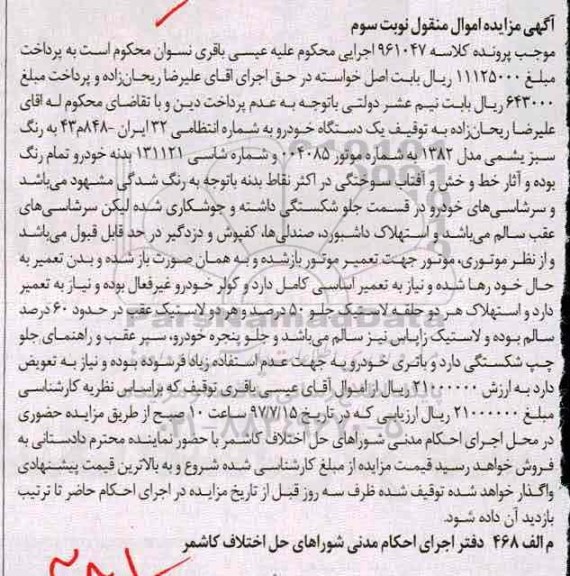 آگهی مزایده اموال منقول نوبت سوم
موجب پرونده کلاسه ۹۶۱۰۴۷ اجرایی محکوم علیه عیسی باقری نسوان محکوم است به پرداخت
مبلغ ۱۱۱۲۵۰۰۰ ریال بابت اصل خواسته در حق اجرای اقای علیرضا ریحان‌زاده و پرداخت مبلغ
۶۴۳۰۰۰ ریال بابت نیم عشر دولتی باتوجه به عدم پرداخت دین و با تقاضای محکوم له اقای
علیرضا ریحان‌زاده به توقیف یک دستگاه خودرو به شماره انتظامی ۳۲ ایران -۸۴۸م۴۳ به رنگ
سبز یشمی مدل ۱۳۸۲ به شماره موتور ۰۰۴۰۸۵ و شماره شاسی ۱۳۱۱۲۱ بدنه خودرو تمام رنگ
بوده و آثار خط و خش و آفتاب سوختگی در اکثر نقاط بدنه باتوجه به رنگ شدگی مشهود می‌باشد
و سرشاسی‌های خودرو در قسمت جلو شکستگی داشته و جوشکاری شده لیکن سرشاسی‌های
عقب سالم می‌باشد و استهلاک داشبورد، صندلی‌ها، کفپوش و دزدگیر در حد قابل قبول می‌باشد
و از نظر موتوری، موتور جهت تعمیر موتور بازشده و به همان صورت باز شده و بدن تعمیر به
حال خود رها شده و نیاز به تعمیر اساسی کامل دارد و کولر خودرو غیرفعال بوده و نیاز به تعمیر
دارد و استهلاک هر دو حلقه لاستیک جلو ۵۰ درصد و هر دو لاستیک عقب در حدود ۶۰ درصد
سالم بوده و لاستیک زاپاس نیز سالم می‌باشد و جلو پنجره خودرو، سپر عقب و راهنمای جلو
چپ شکستگی دارد و باتری خودرو به جهت عدم استفاده زیاد فرسوده بوده و نیاز به تعویض
دارد به ارزش ۲۱۰۰۰۰۰۰ ریال از اموال آقای عیسی باقری توقیف که براساس نظریه کارشناسی
مبلغ ۲۱۰۰۰۰۰۰ ریال ارزیابی که در تاریخ ۹۷/۷/۱۵ ساعت ۱۰ صبح از طریق مزایده حضوری
در محل اجرای احکام مدنی شوراهای حل اختلاف کاشمر با حضور نماینده محترم دادستانی به
فروش خواهد رسید قیمت مزایده از مبلغ کارشناسی شده شروع و به بالاترین قیمت پیشنهادی
واگذار خواهد شده توقیف شده ظرف سه روز قبل از تاریخ مزایده در اجرای احکام حاضر تا ترتیب
بازدید آن داده شود.
م الف ۴۶۸ دفتر اجرای احکام مدنی شوراهای حل اختلاف کاشمر